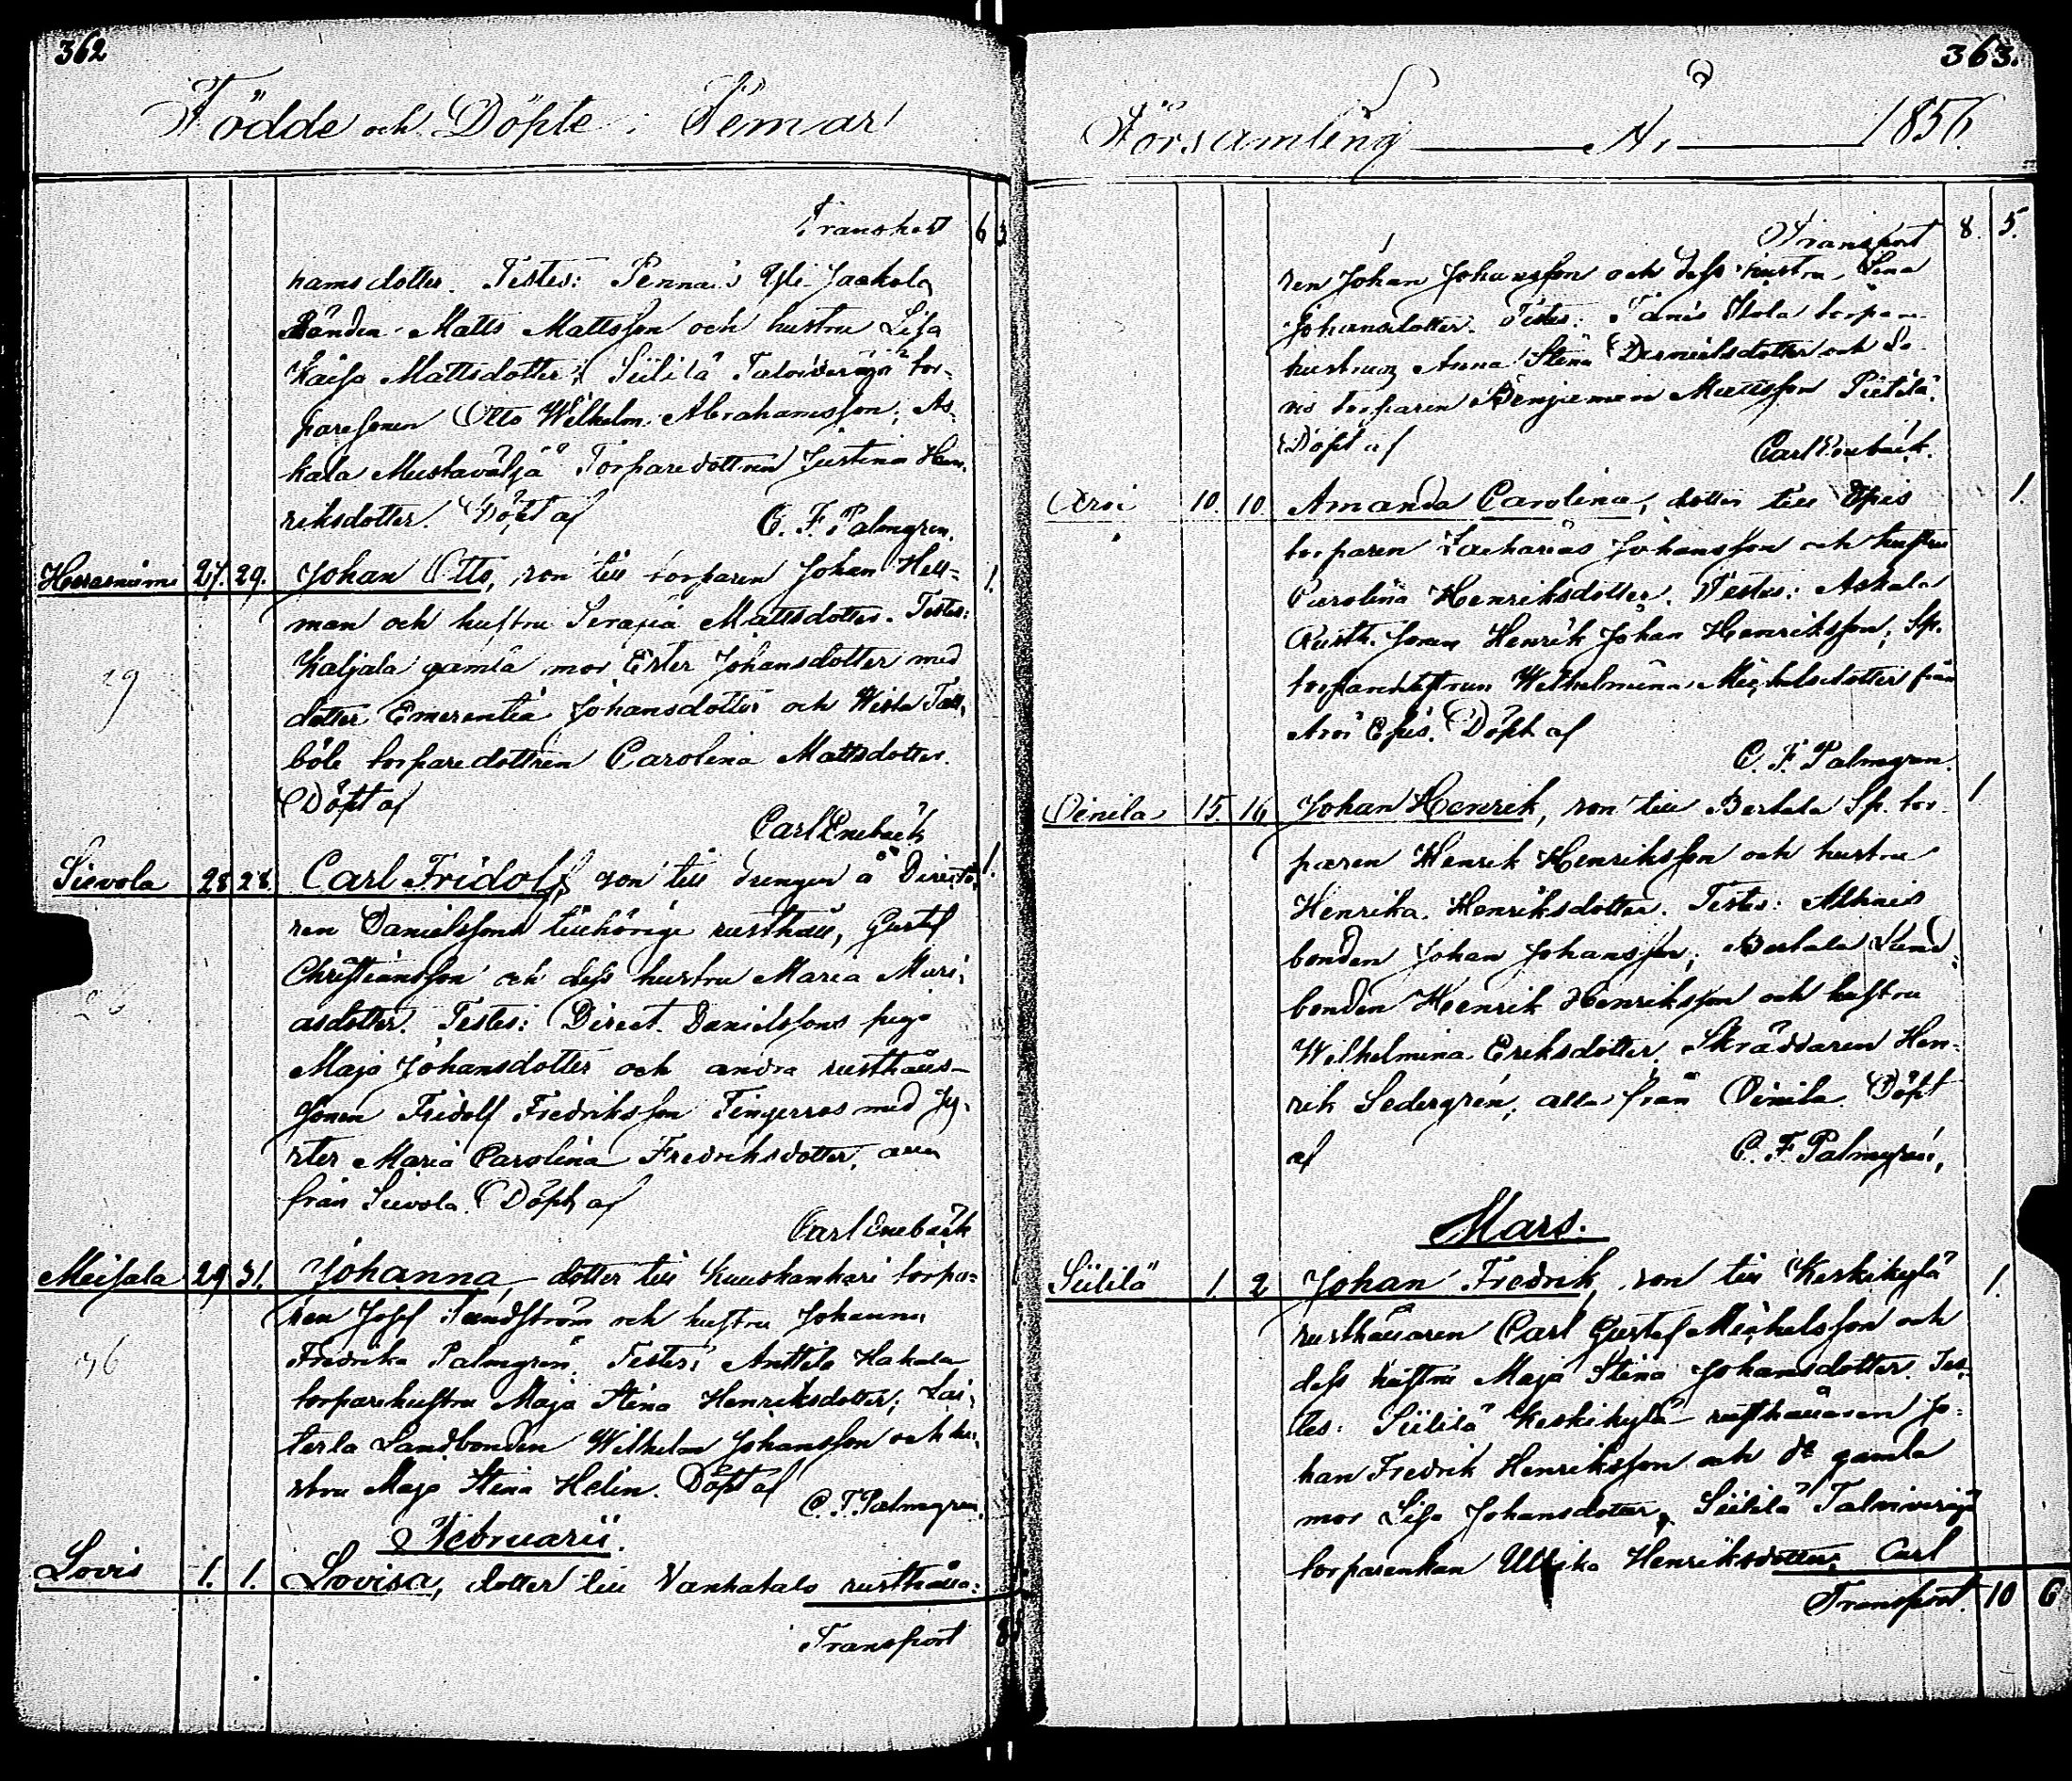 362
Födde och Döpte i Pemar
Transport 6 3
hamsdotter. Testes: Pennais Yli Jackola
Bonden Matts Mattsson och hustru Lisa
Kaisa Mattsdotter; Siililä Talvioerajä tor-
paresonen Otto Wilhelm Abrahamsson; As-
kala Mustavaljä Torparedottren Justina Hen-
riksdotter. Döpt af C. F. Palmgren.
27. 29. Johan Otto, son till torparen Johan Hell- 1.
man och hustru Serafia Mattsdotter. Testes:
Kaljala gamla mor Ester Johansdotter med
dotter Emerentia Johansdotter och Wista Tall-
böle torparedottren Carolina Mattsdotter.
Döpt af
Carl Enebäck
Sievola 28 28. Carl Fridolf, son till drengen å Directö- 1.
ren Danielssons tillhörige rusthåll, Gustaf
Christiansson och dess hustru Maria Mari-
asdotter. Testes: Direct. Danielssons piga
Maja Johansdotter och andra rusthålls-
sonen Fridolf Fredriksson Tingerros med sy-
ster Maria Carolina Fredriksdotter, alla
från Sievola. Döpt af
Carl Enebäck
Meisala 29 31. Johanna, dotter till Kuuskankari torpa-
ren Josef Sandström och hustru Johanna
Fredrika Palmgren. Testes: Anttila Hakala
torparehustru Maja Stina Henriksdotter; Lai-
terla Landbonden Wilhelm Johansson och hu-
stru Maja Stina Helin. Döpt af
C. F. Palmgren.
Februarii.
Lovis 1. 1. Lovisa, dotter till Vanhatalo rusthålla-
Transport 8 5
363.
Församling Åi 1856.
Transport 8. 5.
ren Johan Johansson och dess hustru Lena
Johansdotter. Testes: Tanis Stola torpare
hustrun Anna Stina Danielsdotter och Lo-
vis torparen Benjamin Mattsson Pietilä.
Döpt af Carl Enebäck.
Arvi 10. 10. Amanda Carolina, dotter till Epis 1.
torparen Zacharias Johansson och hustru
Carolina Henriksdotter. Testes: Askala
Rusth. sonen Henrik Johan Henriksson; Sp.
torparehustrun Wilhelmina Michelsdotter från
Arvi Epis. Döpt af
C. F. Palmgren.
Oinila 15. 16 Johan Henrik, son till Bertala Sp. tor- 1
paren Henrik Henriksson och hustru
Henrika Henriksdotter. Testes: Alhais
bonden Johan Johansson; Bertala Land-
bonden Henrik Henriksson och hustru
Wilhelmina Eriksdotter, Skräddaren Hen-
rik Sedergren; alla från Oinila. Döpt
af C. F. Palmgren,
Mars.
Siililä 1. 2 Johan Fredrik, son till Keskikylä 1.
rusthållaren Carl Gustaf Michelsson och
dess hustru Maja Stina Johansdotter. Tes-
tes: Siililä Keskikylä rusthållaren Jo-
han Fredrik Henriksson och do gamla
mor Lisa Johansdotter, Siililä Talvioeraja
torparenkan Ullrika Henriksdotter, Carl
Transport. 10 6